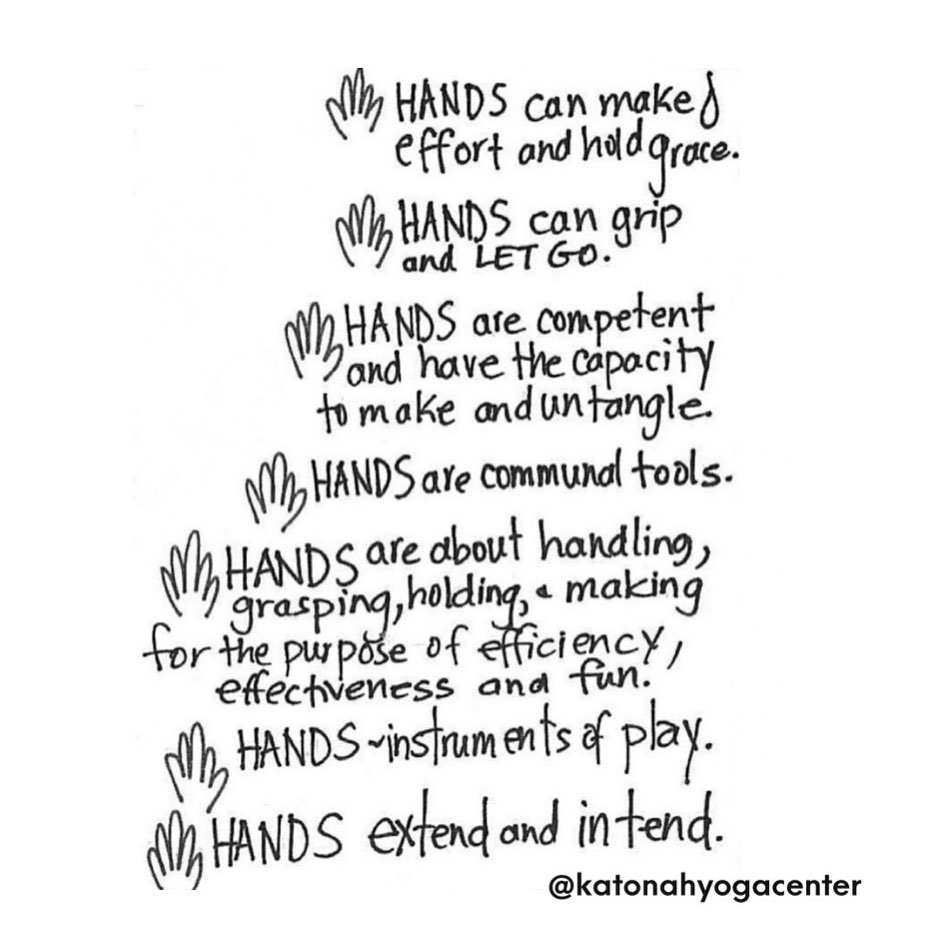 HANDS can make
effort and hold grace.
HANDS can grip
and LET GO.
HANDS are competent
and have the capacity
to make and untangle.
HANDS are communal tools.
HANDS are about handling,
grasping, holding, & making
for the purpose of efficiency,
effectiveness and fun.
HANDS ~instruments of play.
HANDS extend and intend.
@katonahyogacenter